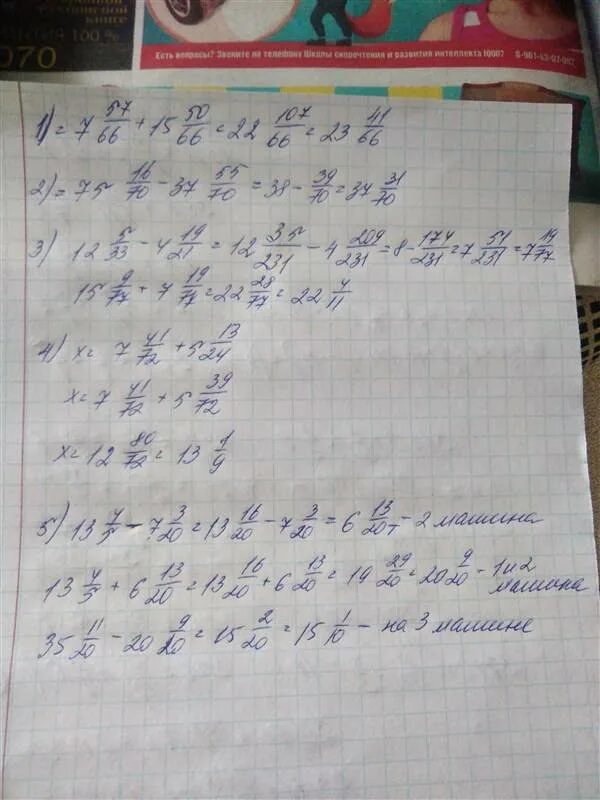 книге
100 %
070
Есть вопросы? Звоните по телефону Школы скорочтения и развития интеллекта IQ007
1) = 7 57/66 + 15 50/66 = 22 107/66 = 23 41/66
2) = 75 16/70 - 37 55/70 = 38 - 39/70 = 37 31/70
3) 12 5/33 - 4 19/21 = 12 35/231 - 4 209/231 = 8 - 174/231 = 7 51/231 = 7 19/77
15 9/77 + 7 19/77 = 22 28/77 = 22 4/11
4) x = 7 41/72 + 5 13/24
x = 7 41/72 + 5 39/72
x = 12 80/72 = 13 1/9
5) 13 4/5 - 7 3/20 = 13 16/20 - 7 3/20 = 6 13/20 т - 2 машина
13 4/5 + 6 13/20 = 13 16/20 + 6 13/20 = 19 29/20 = 20 9/20 - 1 и 2 машина
35 11/20 - 20 9/20 = 15 2/20 = 15 1/10 - на 3 машине